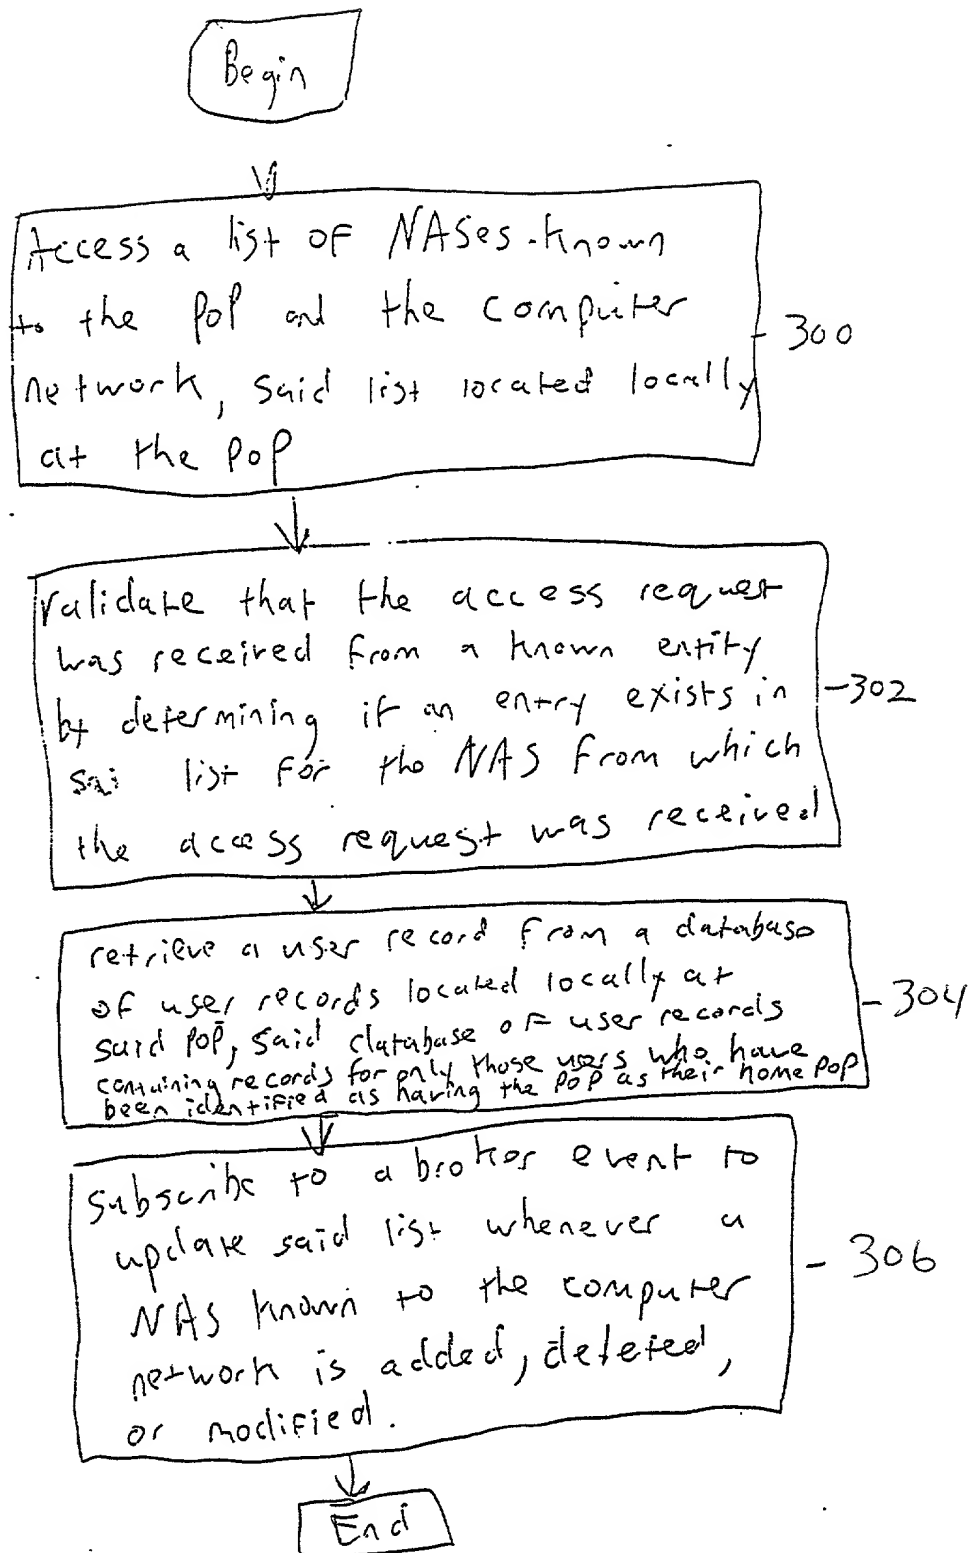 Begin
Access a list of NASes known
to the PoP and the computer
network, said list located locally
at the PoP
300
validate that the access request
was received from a known entity
by determining if an entry exists in
said list for the NAS from which
the access request was received
302
retrieve a user record from a database
of user records located locally at
said PoP, said database of user records
containing records for only those users who have
been identified as having the PoP as their home PoP
304
Subscribe to a broker event to
update said list whenever a
NAS known to the computer
network is added, deleted,
or modified.
306
End